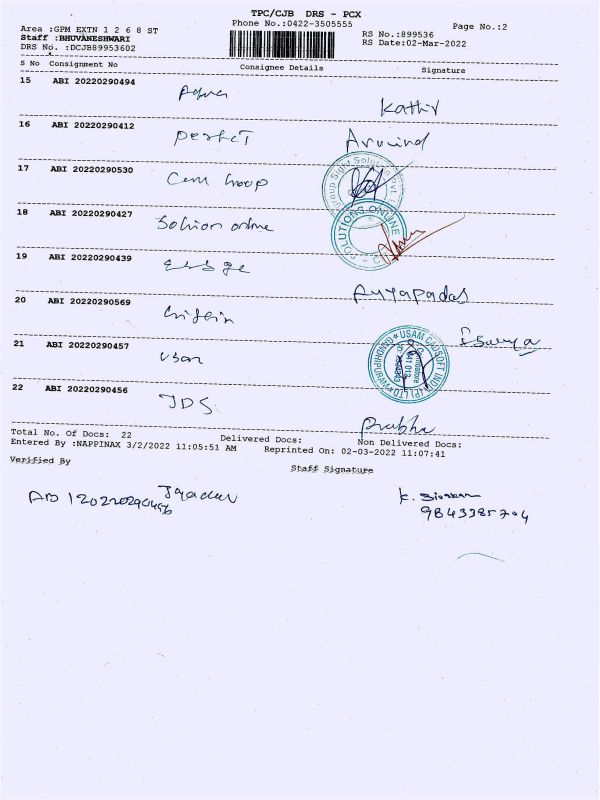 TPC/CJB DRS - PCX
Area :GPM EXTN 1 2 6 8 ST Phone No.:0422-3505555 Page No.:2
Staff :BHUVANESHWARI RS No.:899536
DRS No. :DCJB89953602 RS Date:02-Mar-2022
S No Consignment No Consignee Details Signature
15 ABI 20220290494
Kathir
16 ABI 20220290412 perfect Arvind
17 ABI 20220290530 Cem Group
18 ABI 20220290427 Solution online
SOLUTIONS ONLINE
19 ABI 20220290439
Ayyapadas
20 ABI 20220290569
21 ABI 20220290457 Usam
USAM CADSOFT INDIA (P) LTD
22 ABI 20220290456 JDS Prabhu
Total No. Of Docs: 22 Delivered Docs: Non Delivered Docs:
Entered By :NAPPINAX 3/2/2022 11:05:51 AM Reprinted On: 02-03-2022 11:07:41
Verified By Staff Signature
9843385704